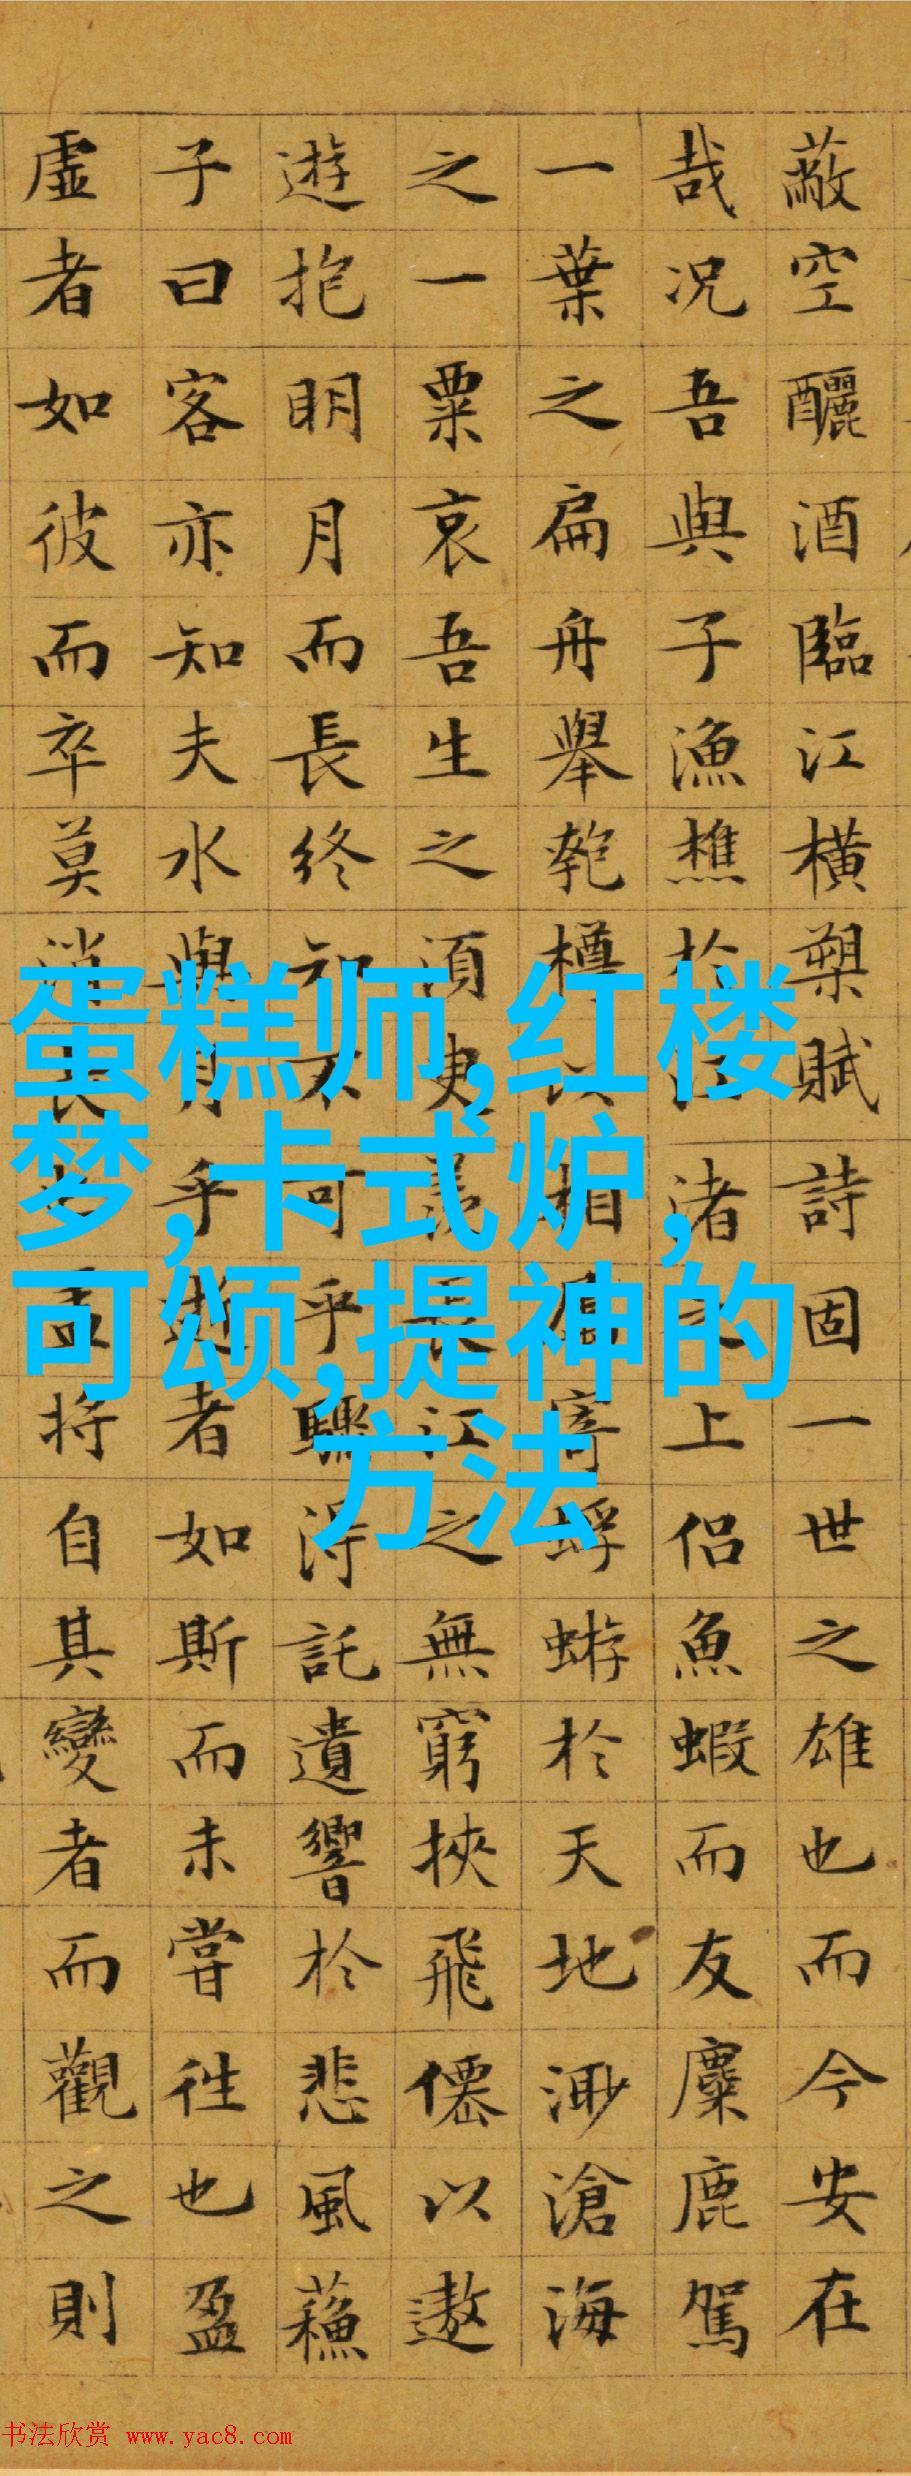 蔽空釃酒臨江橫槊賦詩固一世之雄也而今安在
哉况吾與子漁樵於江渚之上侶魚蝦而友麋鹿駕
一葉之扁舟舉匏樽以相屬寄蜉蝣於天地渺滄海
之一粟哀吾生之須臾羨長江之無窮挾飛僊以遨
遊抱明月而長終知不可乎驟得託遺響於悲風蘓
子曰客亦知夫水與月乎逝者如斯而未嘗往也盈
虛者如彼而卒莫消長也盖将自其變者而觀之則
蛋糕师,红楼
梦,卡式炉,
可颂,提神的
方法
书法欣赏 www.yac8.com